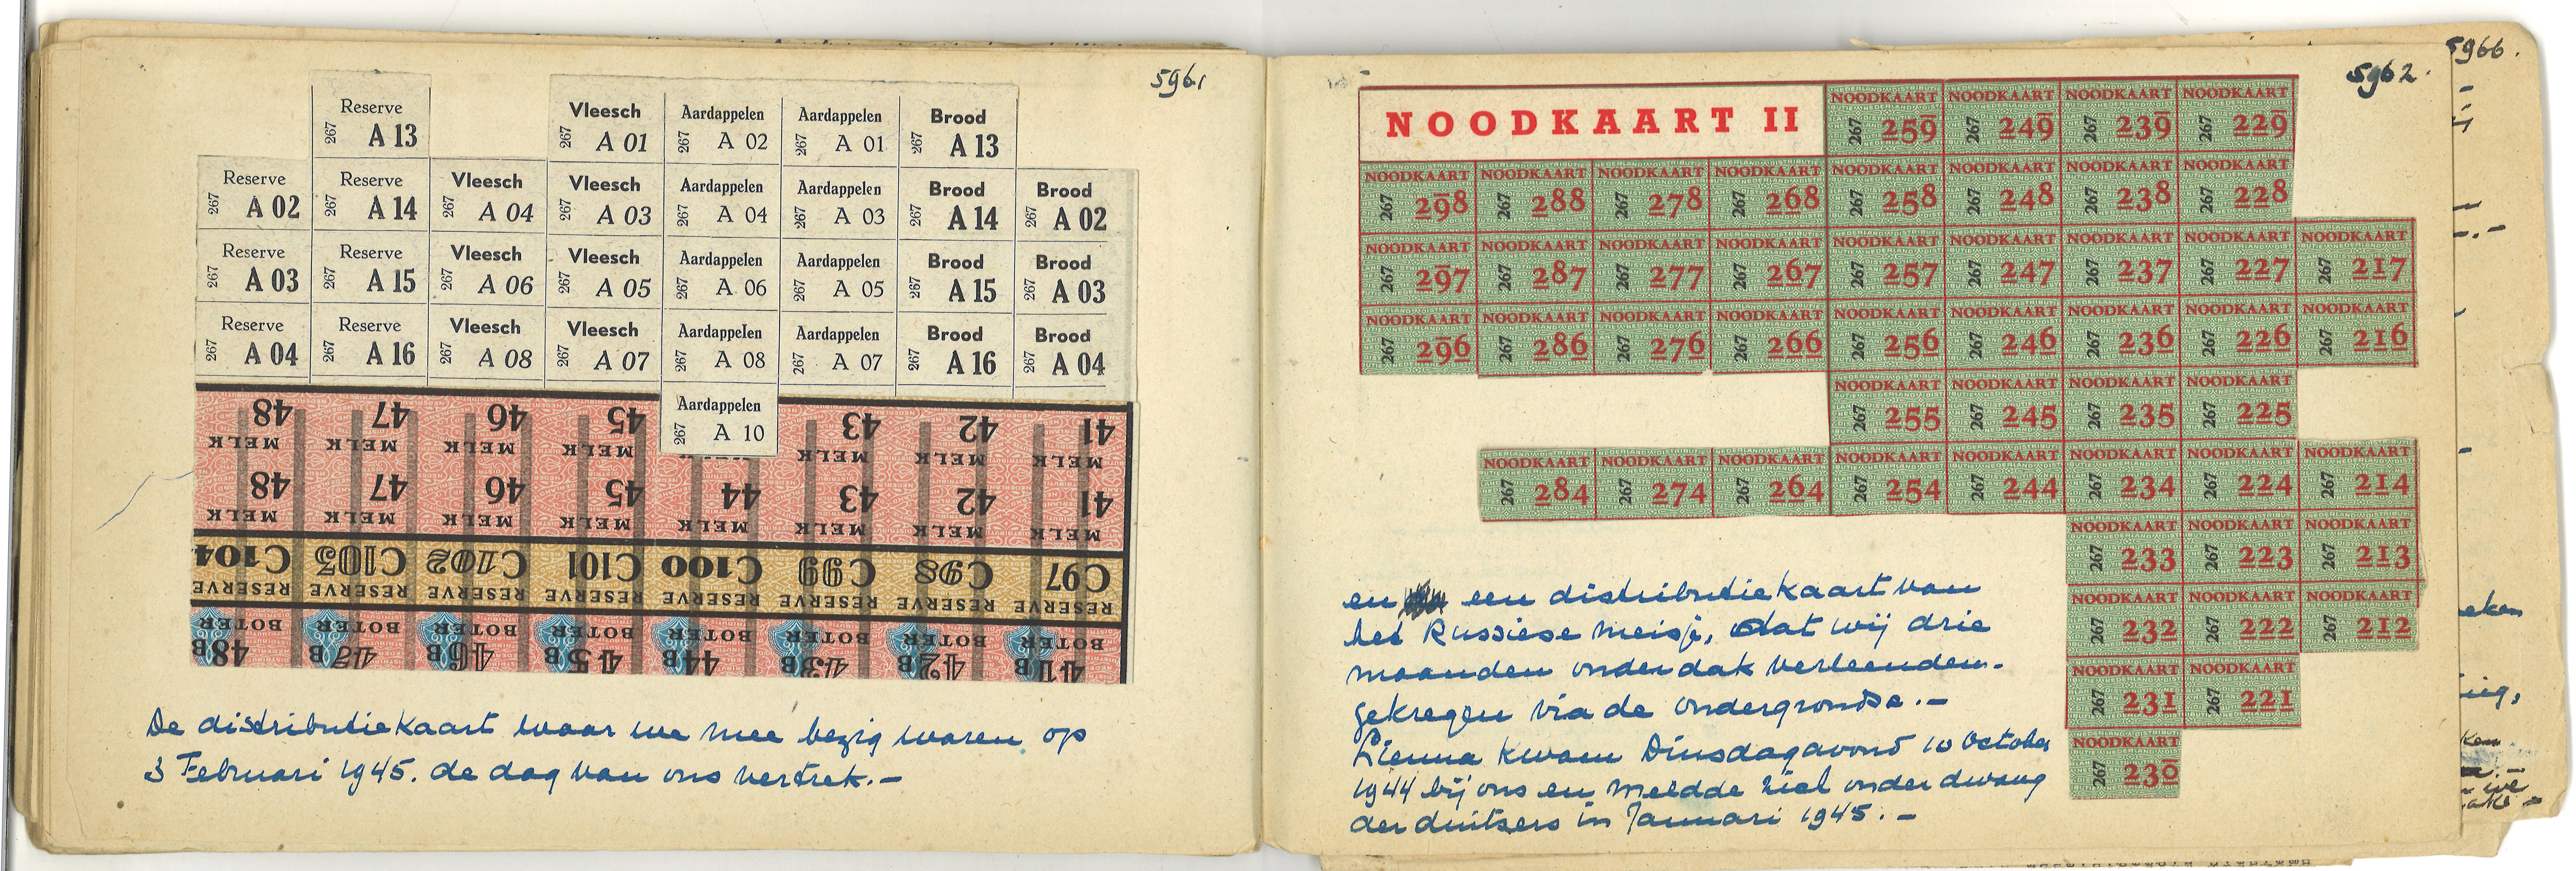 5961
Reserve Vleesch Aardappelen Aardappelen Brood
267 A 13 267 A 01 267 A 02 267 A 01 267 A 13
Reserve Reserve Vleesch Vleesch Aardappelen Aardappelen Brood Brood
267 A 02 267 A 14 267 A 04 267 A 03 267 A 04 267 A 03 267 A 14 267 A 02
Reserve Reserve Vleesch Vleesch Aardappelen Aardappelen Brood Brood
267 A 03 267 A 15 267 A 06 267 A 05 267 A 06 267 A 05 267 A 15 267 A 03
Reserve Reserve Vleesch Vleesch Aardappelen Aardappelen Brood Brood
267 A 04 267 A 16 267 A 08 267 A 07 267 A 08 267 A 07 267 A 16 267 A 04
Aardappelen
267 A 10
48 47 46 45 43 42 41
MELK MELK MELK MELK MELK MELK MELK
48 47 46 45 44 43 42 41
MELK MELK MELK MELK MELK MELK MELK MELK
C104 C103 C102 C101 C100 C99 C98 C97
RESERVE RESERVE RESERVE RESERVE RESERVE RESERVE RESERVE RESERVE
BOTER BOTER BOTER BOTER BOTER BOTER BOTER BOTER
48B 47B 46B 45B 44B 43B 42B 41B
De distributiekaart waar we mee bezig waren op
3 Februari 1945. de dag van ons vertrek.-
5962.
NOODKAART II
NOODKAART NOODKAART NOODKAART NOODKAART
267 259 267 249 267 239 267 229
NOODKAART NOODKAART NOODKAART NOODKAART NOODKAART NOODKAART NOODKAART NOODKAART
267 298 267 288 267 278 267 268 267 258 267 248 267 238 267 228
NOODKAART NOODKAART NOODKAART NOODKAART NOODKAART NOODKAART NOODKAART NOODKAART NOODKAART
267 297 267 287 267 277 267 267 267 257 267 247 267 237 267 227 267 217
NOODKAART NOODKAART NOODKAART NOODKAART NOODKAART NOODKAART NOODKAART NOODKAART NOODKAART
267 296 267 286 267 276 267 266 267 256 267 246 267 236 267 226 267 216
NOODKAART NOODKAART NOODKAART NOODKAART
267 255 267 245 267 235 267 225
NOODKAART NOODKAART NOODKAART NOODKAART NOODKAART NOODKAART NOODKAART NOODKAART
267 284 267 274 267 264 267 254 267 244 267 234 267 224 267 214
NOODKAART NOODKAART NOODKAART
267 233 267 223 267 213
NOODKAART NOODKAART NOODKAART
267 232 267 222 267 212
NOODKAART NOODKAART
267 231 267 221
NOODKAART
267 230
en een distributiekaart van
het Russiese meisje, dat wij drie
maanden onderdak verleenden.
gekregen via de ondergrondse.-
Zienna kwam Dinsdagavond 10 October
1944 bij ons en meldde zich onder dwang
der duitsers in Januari 1945.-
5966.